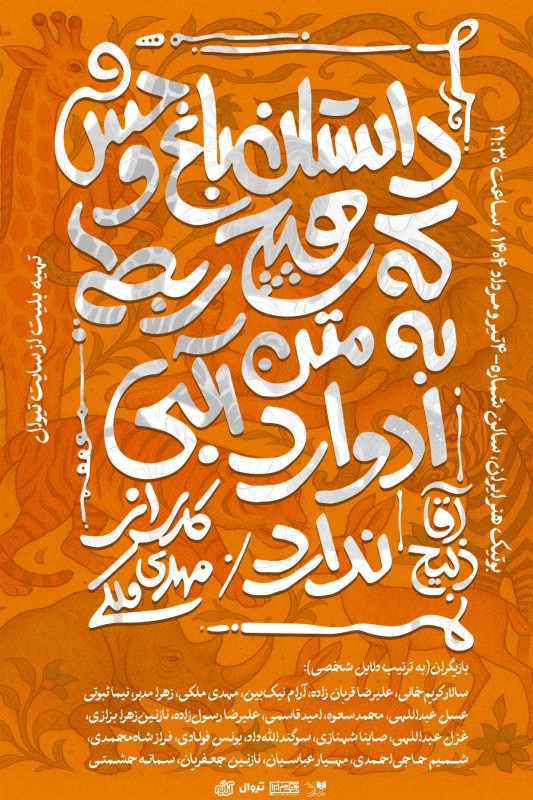 داستان باغ وحش
که هیچ ربطی
به متن
ادوارد آلبی
ندارد/
آقا ذبیح
کاری از
مهدی ملکی
بوتیک هنر ایران، سالن شماره ۴ - تیر و مرداد ۱۴۰۴، ساعت ۲۱:۳۰
تهیه بلیت از سایت تیوال
بازیگران(به ترتیب دلایل شخصی):
سالار کریم‌خانی، علیرضا قربان زاده، آرام نیک‌بین، مهدی ملکی، زهرا مدبر، نیما ثبوتی
عسل عبداللهی، محمد سعوه، امید قاسمی، علیرضا رسول‌زاده، نازنین زهرا بزازی،
غزل عبداللهی، صاینا شهنازی، سوگند الله‌داد، یونس فولادی، فراز شاه‌محمدی،
شمیم حاجی‌احمدی، مهیار عباسیان، نازنین جعفریان، سمانه حشمتی
تیوال